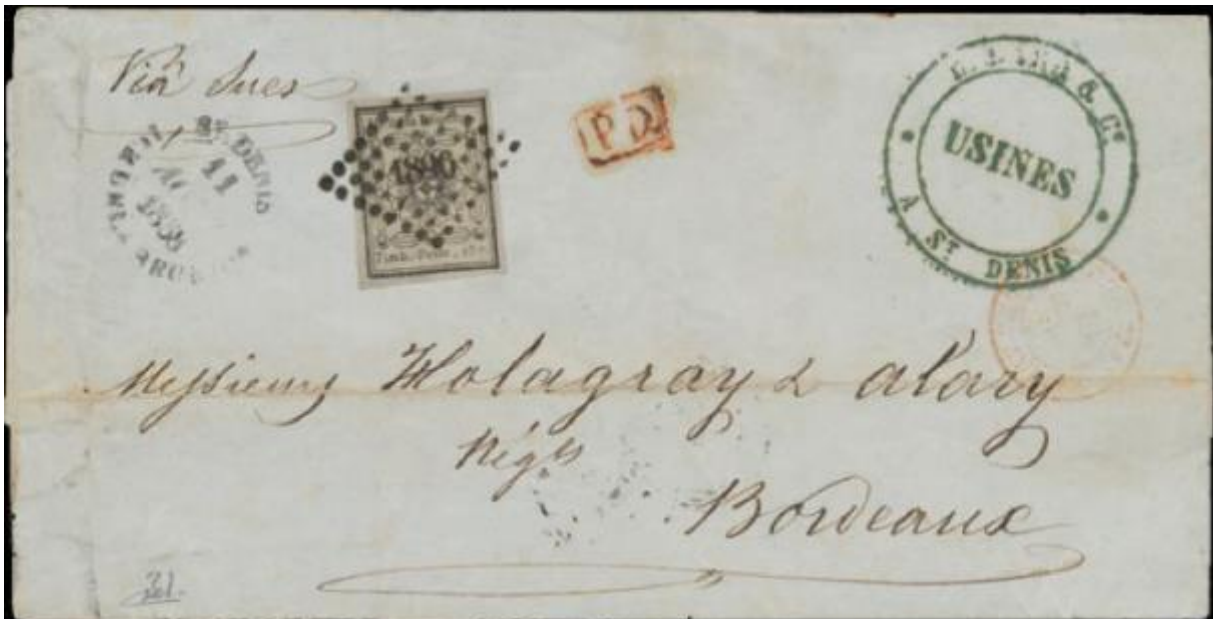 Viâ Suez
ST DENIS
11
1858
1896
Timb.-Poste.
P D
& Cie
USINES
A ST DENIS
Messieurs Holagray & alary
Négts
Bordeaux